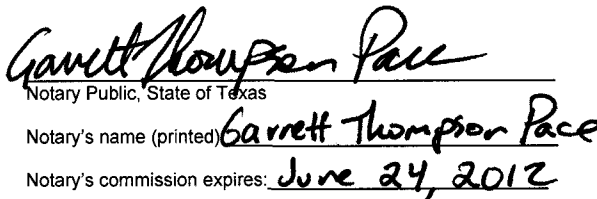 Garrett Thompson Pace
Notary Public, State of Texas
Notary's name (printed) Garrett Thompson Pace
Notary's commission expires: June 24, 2012